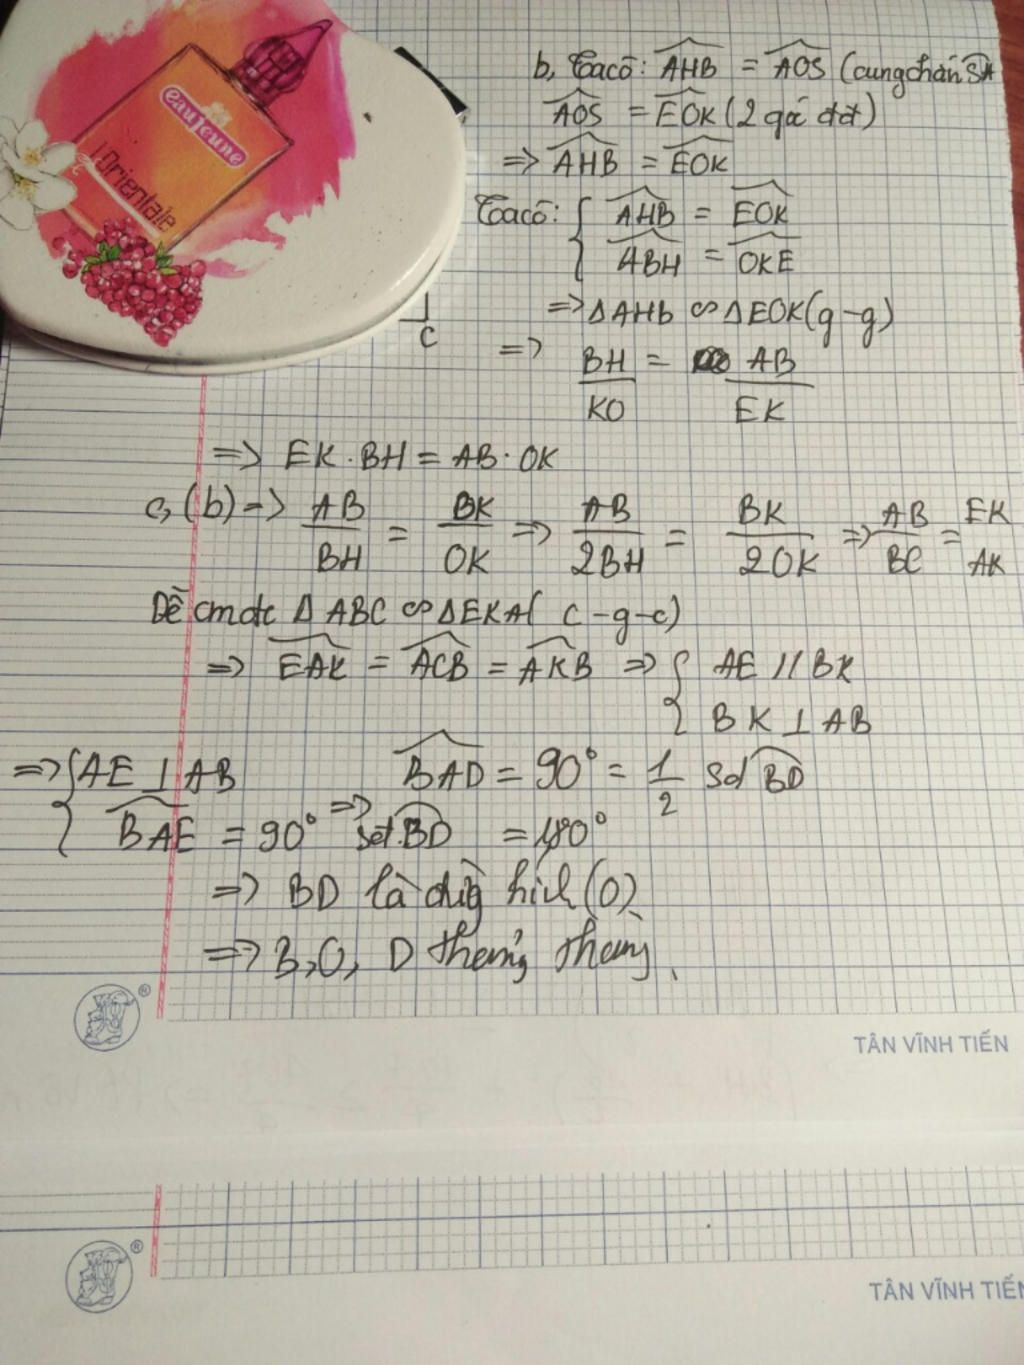 eau jeune
L'Orientale
b, Ta có: AHB = AOS (cùng chắn SA
AOS = EOK (2 góc đđ)
=> AHB = EOK
Ta có: { AHB = EOK
ABH = OKE
=> ΔAHB ∽ ΔEOK (g-g)
C
=> BH/KO = AB/EK
=> EK . BH = AB . OK
c, (b) => AB/BH = BK/OK => AB/2BH = BK/2OK => AB/BC = EK/AK
Dễ cmđc Δ ABC ∽ ΔEKA ( c-g-c)
=> EAK = ACB = AKB => { AE // BK
BK ⊥ AB
=> { AE ⊥ AB BAD = 90° = 1/2 Sđ BD
BAE = 90° => sđ BD = 180°
=> BD là kính (O)
=> B, O, D thẳng hàng
®
TÂN VĨNH TIẾN
®
TÂN VĨNH TIẾN